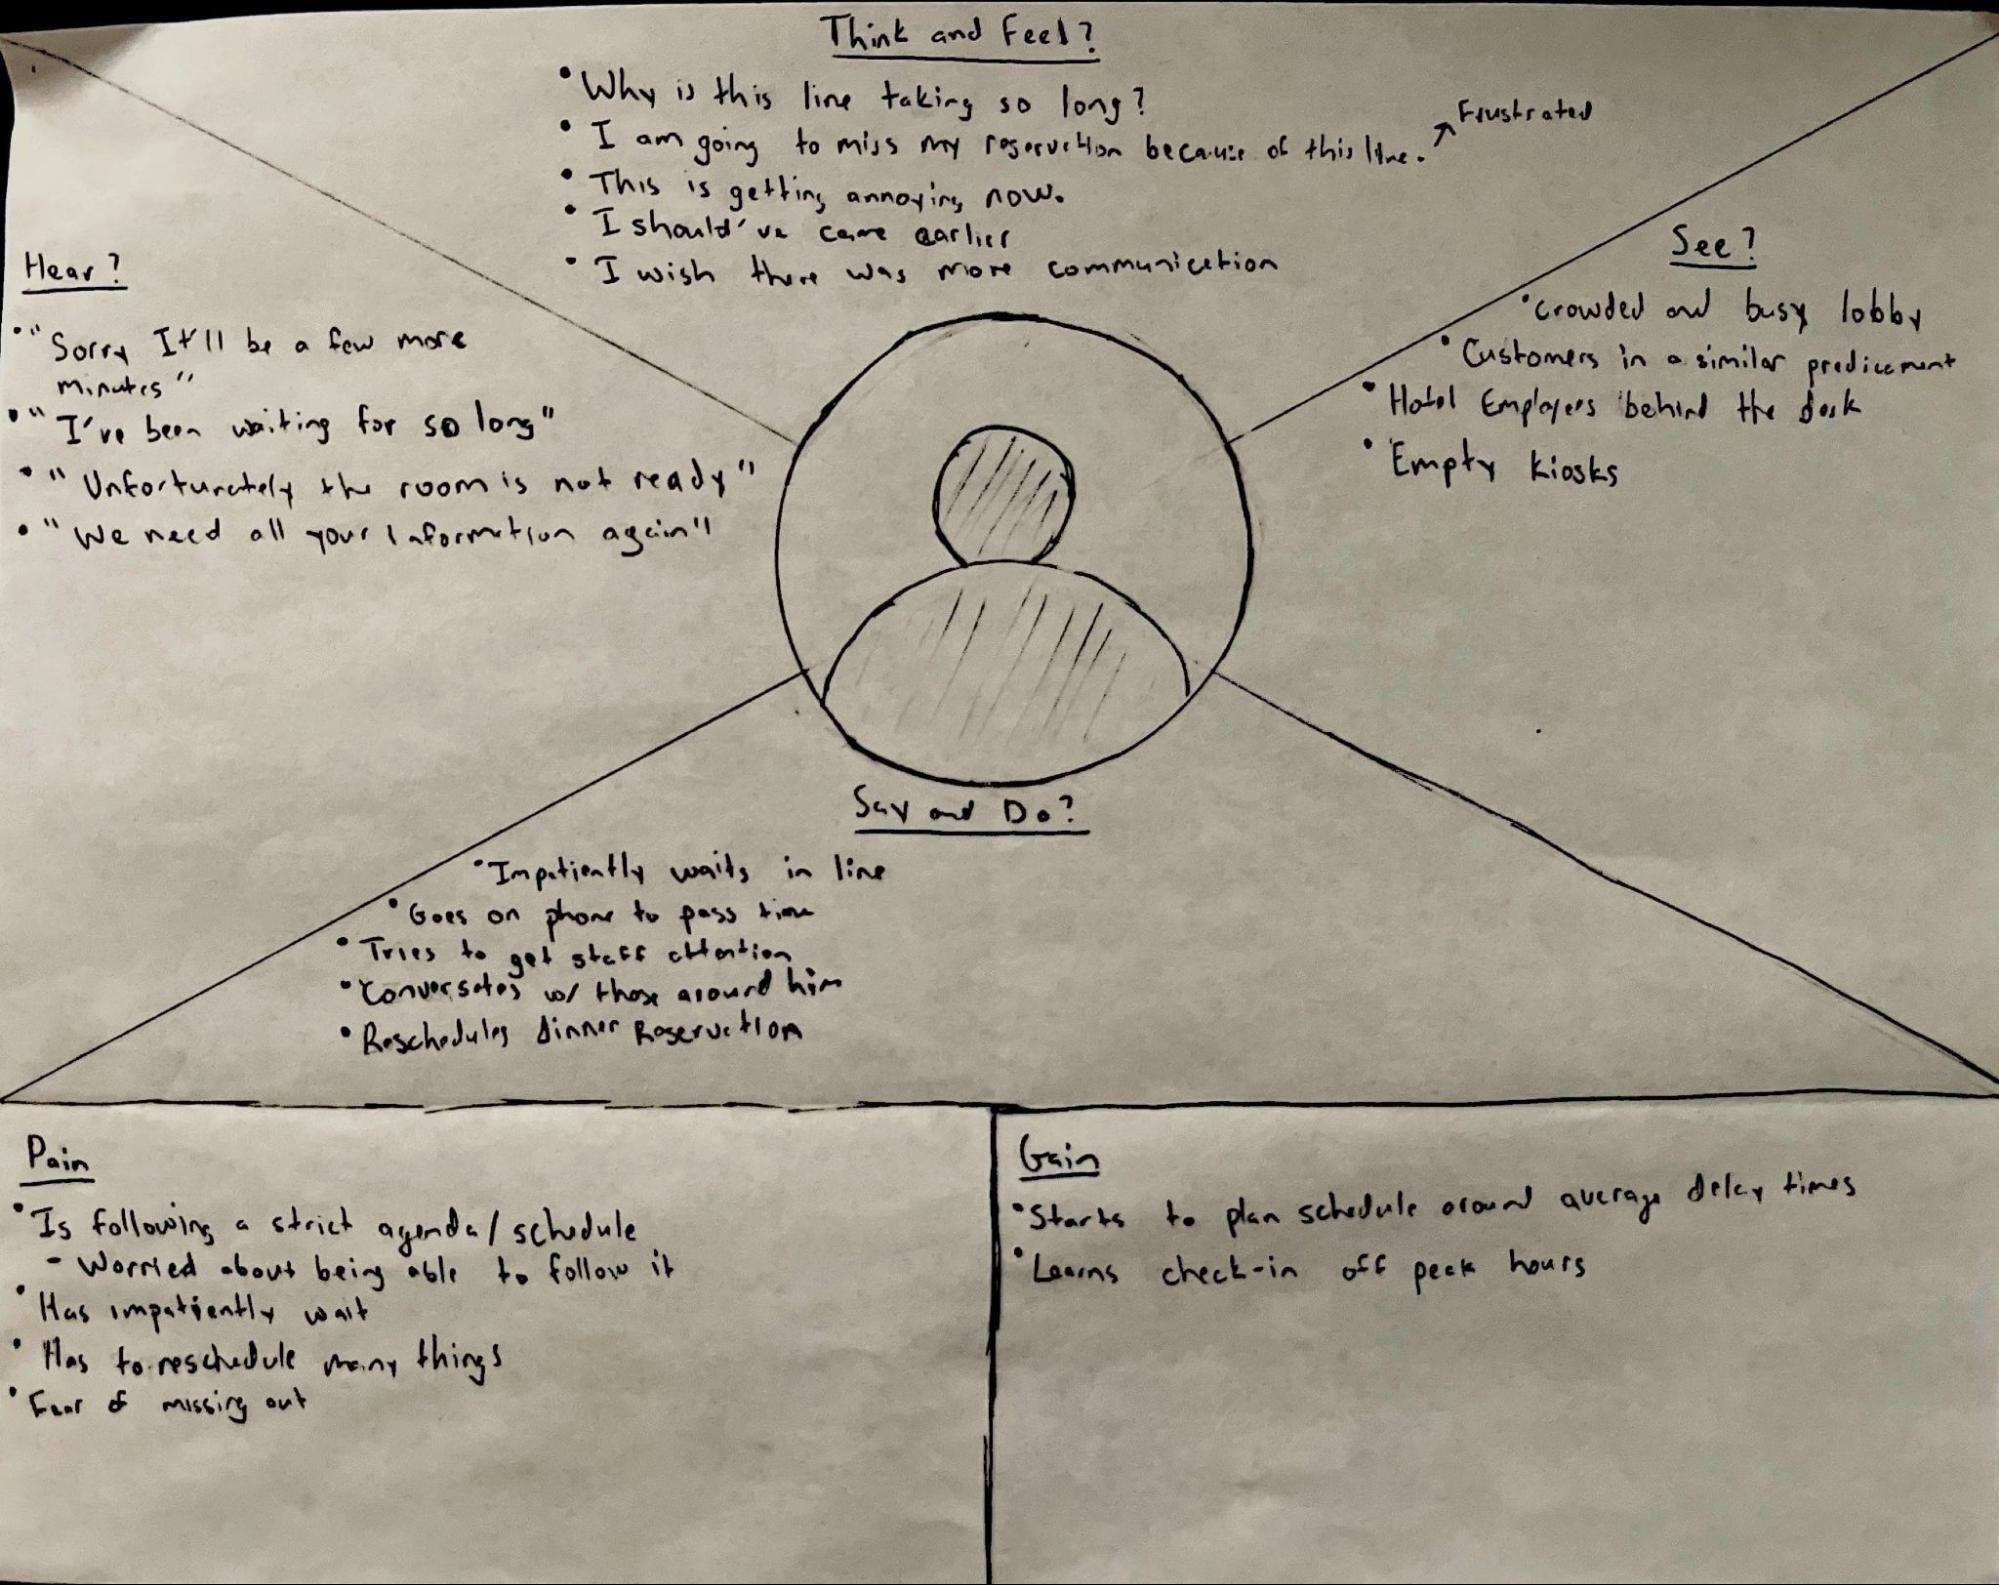 Think and Feel?
• Why is this line taking so long?
• I am going to miss my reservation because of this line. ↗ Frustrated
• This is getting annoying now.
• I should've came earlier
• I wish there was more communication
Hear?
• "Sorry It'll be a few more
minutes"
• "I've been waiting for so long"
• "Unfortunately the room is not ready"
• "We need all your information again"
See?
• Crowded and busy lobby
• Customers in a similar predicament
• Hotel Employees behind the desk
• Empty kiosks
Say and Do?
• Impatiently waits in line
• Goes on phone to pass time
• Tries to get staff attention
• Conversates w/ those around him
• Reschedules dinner Reservation
Pain
• Is following a strict agenda/schedule
- Worried about being able to follow it
• Has impatiently wait
• Has to reschedule many things
• Fear of missing out
Gain
• Starts to plan schedule around average delay times
• Learns check-in off peak hours